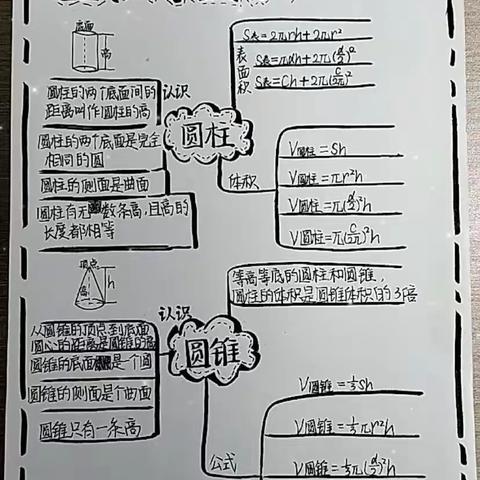 底面
高
圆柱的两个底面间的
距离叫作圆柱的高
圆柱的两个底面是完全
相同的圆
圆柱的侧面是曲面
圆柱有无数条高,且高的
长度都相等
认识
圆柱
表面积
S表=2πrh+2πr²
S表=πdh+2π(d/2)²
S表=Ch+2π(C/2π)²
体积
V圆柱=Sh
V圆柱=πr²h
V圆柱=π(d/2)²h
V圆柱=π(C/2π)²h
顶点
高
h
从圆锥的顶点到底面
圆心的距离是圆锥的高
圆锥的底面是一个圆
圆锥的侧面是个曲面
圆锥只有一条高
认识
圆锥
等高等底的圆柱和圆锥,
圆柱的体积是圆锥体积的3倍
公式
V圆锥=⅓Sh
V圆锥=⅓πr²h
V圆锥=⅓π(d/2)²h